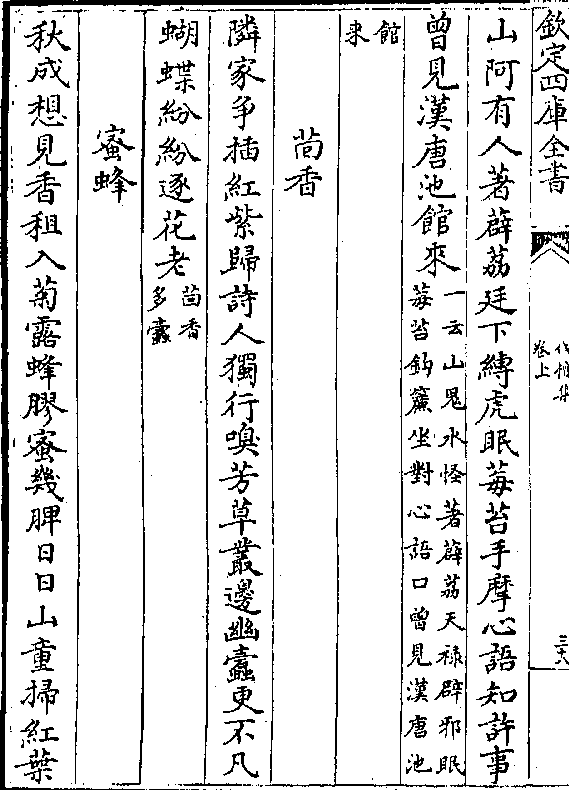 欽定四庫全書
卷上
山阿有人著薜荔廷下縛虎眠莓苔手摩心語知許事
曾見漢唐池館來
一云山鬼水怪著薜荔天祿辟邪眠
莓苔鈎簾坐對心語口曾見漢唐池
館
來
茴香
隣家爭插紅紫歸詩人獨行嗅芳草叢邊幽蠹更不凡
蝴蝶紛紛逐花老
茴香
多蠹
蜜蜂
秋成想見香租入菊露蜂膠蜜幾脾日日山童掃紅葉